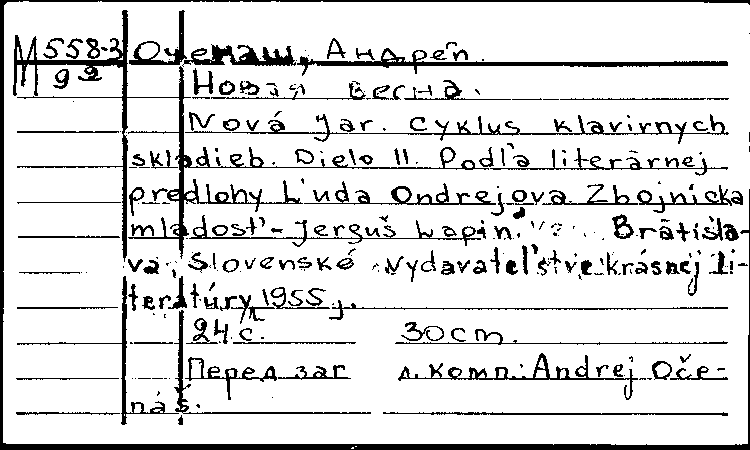 М 558-3 Оченаш, Андрей.
92
Новая весна.
Nová Jar. Cyklus klavirnych
skladieb. Dielo II. Podl'a literárnej
predlohy L'uda Ondrejova Zbojnícka
mladost' - Jerguš Lapin. Bratisla-
va, Slovenské vydavatel'stvo krásnej li-
teratúry, 1955 j.
24 с. 30 cm.
Перед заг л. комп.: Andrej Oče-
náš.